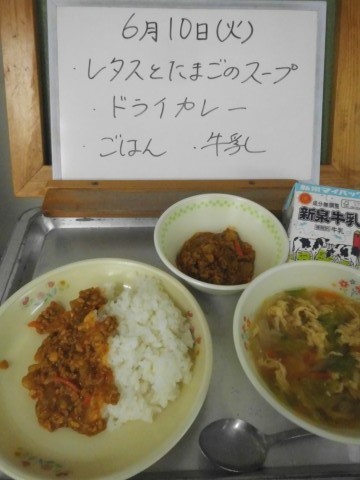 6月10日(火)
・レタスとたまごのスープ
・ドライカレー
・ごはん ・牛乳
成分無調整
新泉牛乳
牛乳